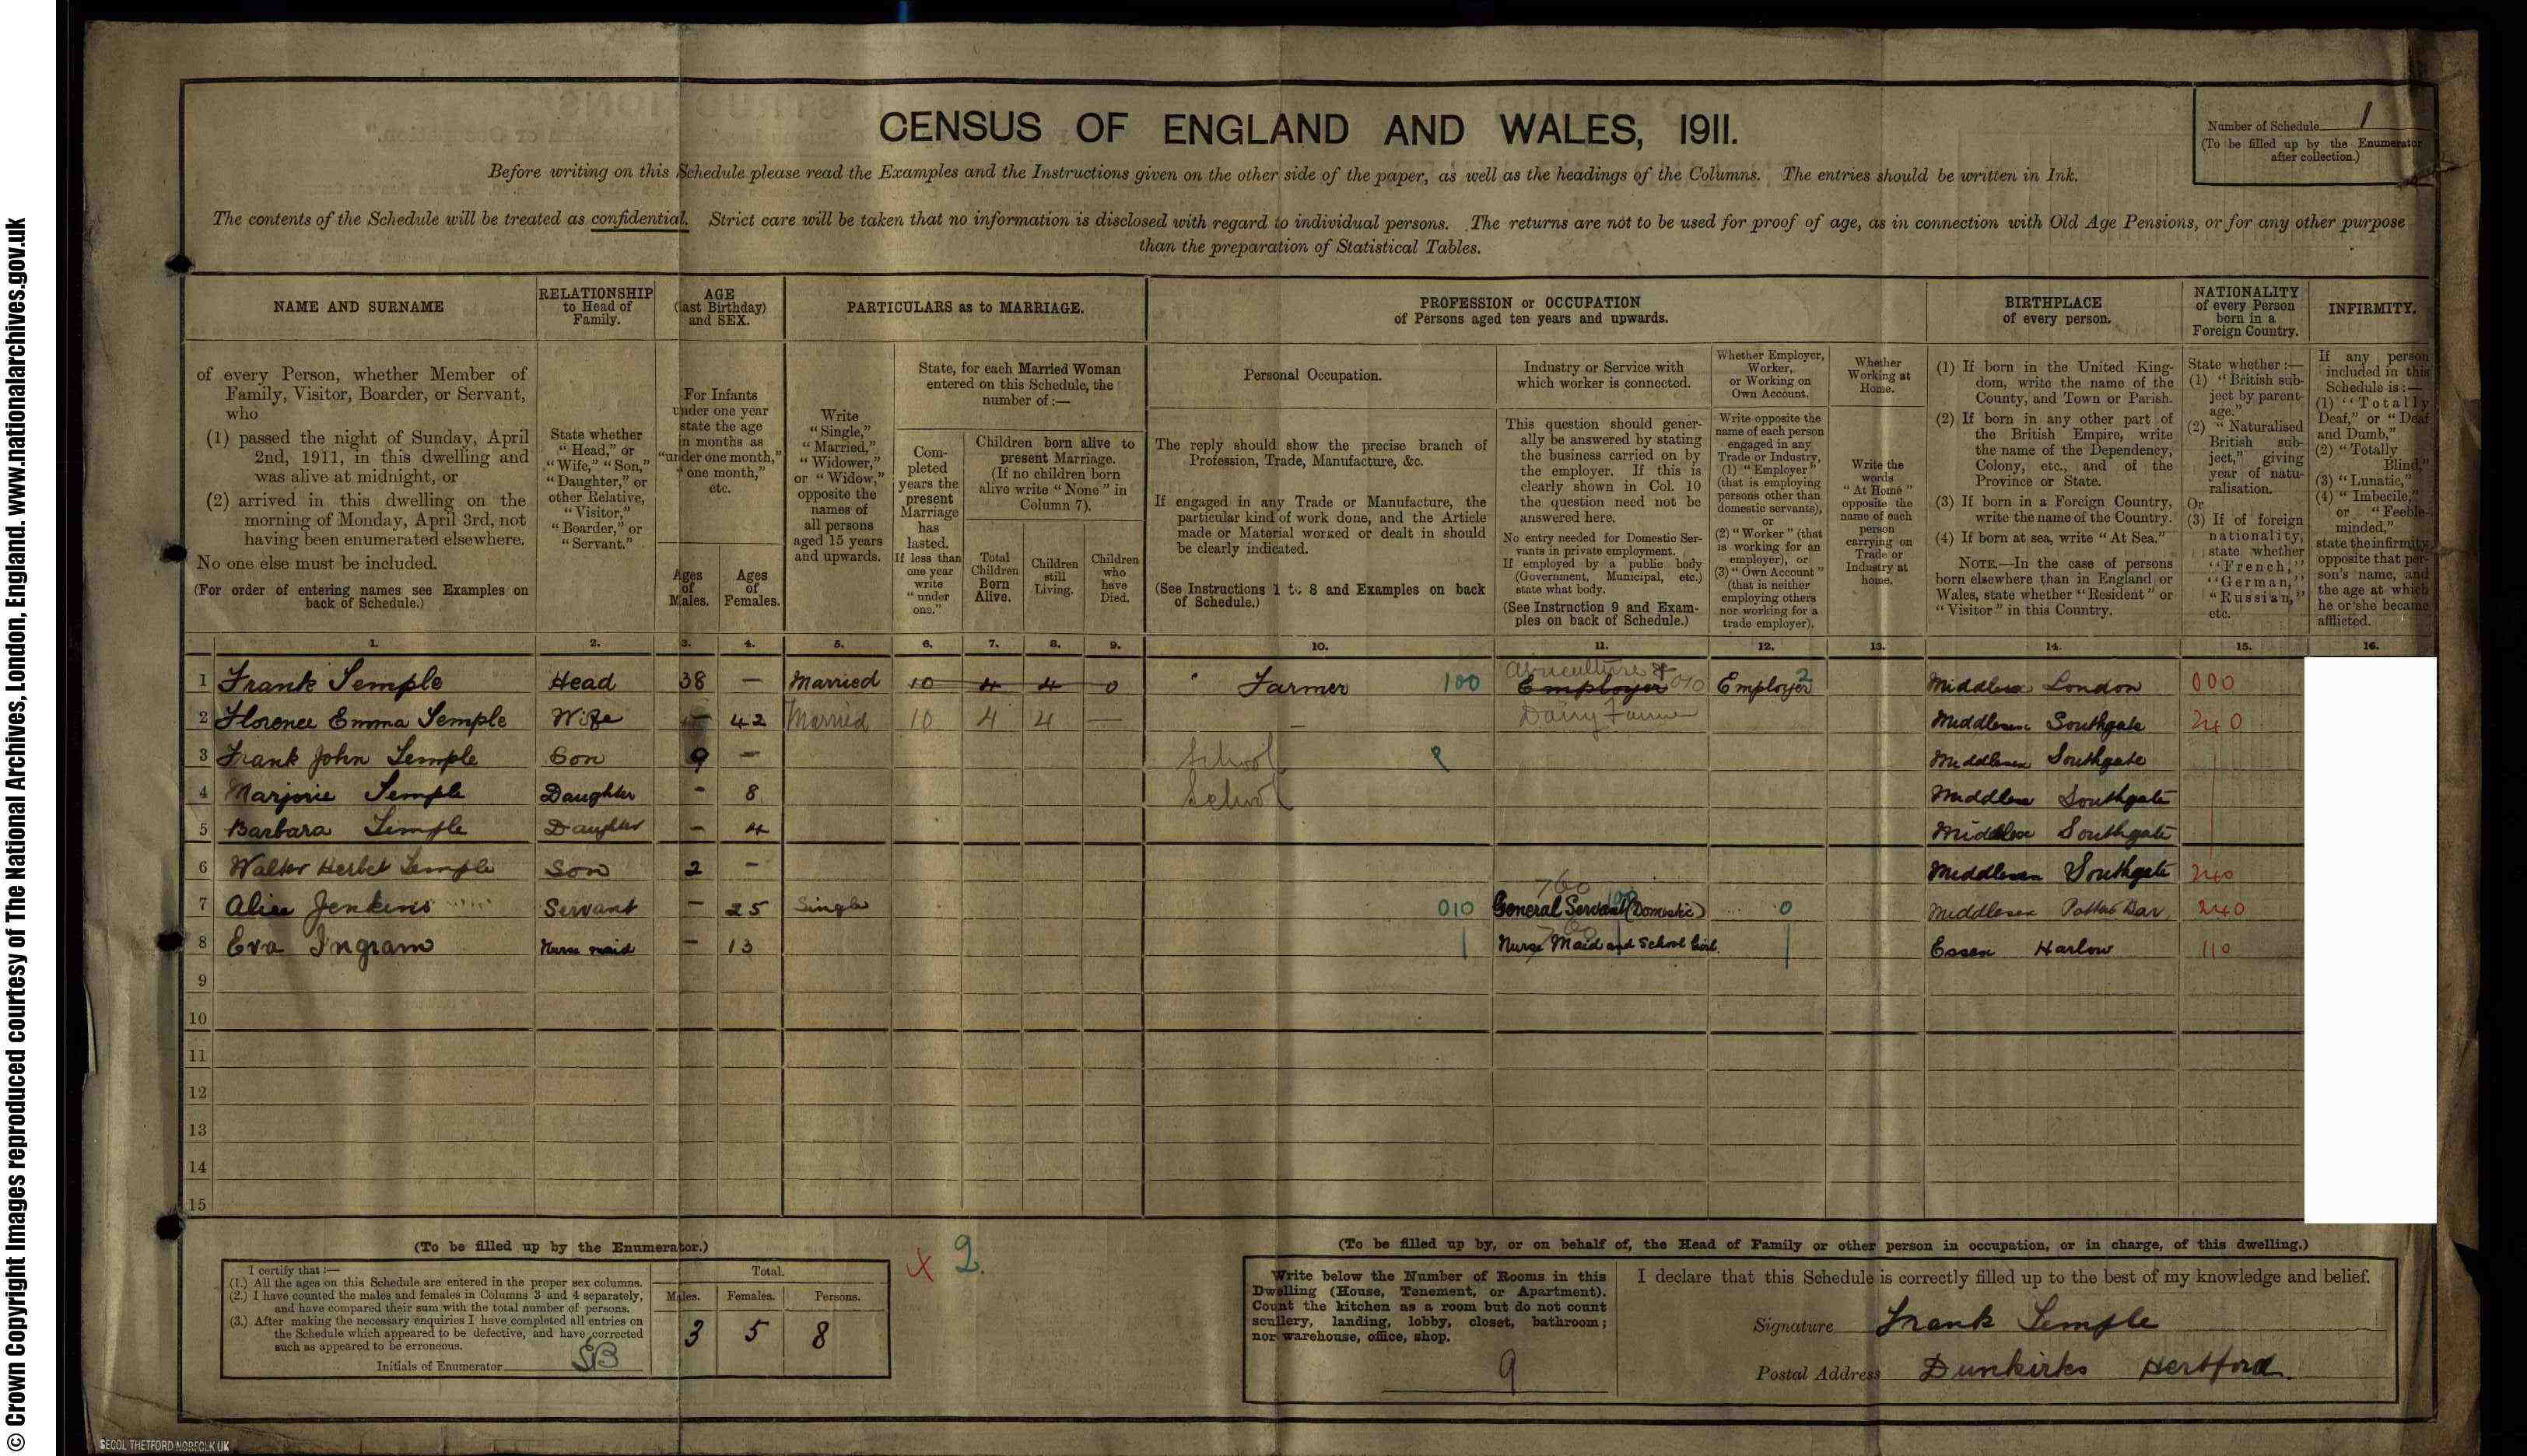 © Crown Copyright Images reproduced courtesy of The National Archives, London, England. www.nationalarchives.gov.uk
CENSUS OF ENGLAND AND WALES, 1911.
Number of Schedule 1
(To be filled up by the Enumerator
after collection.)
Before writing on this Schedule please read the Examples and the Instructions given on the other side of the paper, as well as the headings of the Columns. The entries should be written in Ink.
The contents of the Schedule will be treated as confidential. Strict care will be taken that no information is disclosed with regard to individual persons. The returns are not to be used for proof of age, as in connection with Old Age Pensions, or for any other purpose
than the preparation of Statistical Tables.
NAME AND SURNAME
of every Person, whether Member of
Family, Visitor, Boarder, or Servant,
who
(1) passed the night of Sunday, April
2nd, 1911, in this dwelling and
was alive at midnight, or
(2) arrived in this dwelling on the
morning of Monday, April 3rd, not
having been enumerated elsewhere.
No one else must be included.
(For order of entering names see Examples on
back of Schedule.)
RELATIONSHIP
to Head of
Family.
State whether
"Head," or
"Wife," "Son,"
"Daughter," or
other Relative,
"Visitor,"
"Boarder," or
"Servant."
AGE
(last Birthday)
and SEX.
For Infants
under one year
state the age
in months as
"under one month,"
"one month,"
etc.
Ages
of
Males.
Ages
of
Females.
PARTICULARS as to MARRIAGE.
Write
"Single,"
"Married,"
"Widower,"
or "Widow,"
opposite the
names of
all persons
aged 15 years
and upwards.
State, for each Married Woman
entered on this Schedule, the
number of :—
Com-
pleted
years the
present
Marriage
has
lasted.
If less than
one year
write
"under
one."
Children born alive to
present Marriage.
(If no children born
alive write "None" in
Column 7).
Total
Children
Born
Alive.
Children
still
Living.
Children
who
have
Died.
PROFESSION or OCCUPATION
of Persons aged ten years and upwards.
Personal Occupation.
The reply should show the precise branch of
Profession, Trade, Manufacture, &c.
If engaged in any Trade or Manufacture, the
particular kind of work done, and the Article
made or Material worked or dealt in should
be clearly indicated.
(See Instructions 1 to 8 and Examples on back
of Schedule.)
Industry or Service with
which worker is connected.
This question should gener-
ally be answered by stating
the business carried on by
the employer. If this is
clearly shown in Col. 10
the question need not be
answered here.
No entry needed for Domestic Ser-
vants in private employment.
If employed by a public body
(Government, Municipal, etc.)
state what body.
(See Instruction 9 and Exam-
ples on back of Schedule.)
Whether Employer,
Worker,
or Working on
Own Account.
Write opposite the
name of each person
engaged in any
Trade or Industry,
(1) "Employer"
(that is employing
persons other than
domestic servants),
or
(2) "Worker" (that
is working for an
employer), or
(3) "Own Account"
(that is neither
employing others
nor working for a
trade employer).
Whether
Working at
Home.
Write the
words
"At Home"
opposite the
name of each
person
carrying on
Trade or
Industry at
home.
BIRTHPLACE
of every person.
(1) If born in the United King-
dom, write the name of the
County, and Town or Parish.
(2) If born in any other part of
the British Empire, write
the name of the Dependency,
Colony, etc., and of the
Province or State.
(3) If born in a Foreign Country,
write the name of the Country.
(4) If born at sea, write "At Sea."
NOTE.—In the case of persons
born elsewhere than in England or
Wales, state whether "Resident" or
"Visitor" in this Country.
NATIONALITY
of every Person
born in a
Foreign Country.
State whether :—
(1) "British sub-
ject by parent-
age."
(2) "Naturalised
British sub-
ject," giving
year of natu-
ralisation.
Or
(3) If of foreign
nationality,
state whether
"French,"
"German,"
"Russian,"
etc.
INFIRMITY.
If any person
included in this
Schedule is :—
(1) "Totally
Deaf," or "Deaf
and Dumb,"
(2) "Totally
Blind,"
(3) "Lunatic,"
(4) "Imbecile,"
or "Feeble-
minded,"
state the infirmity
opposite that per-
son's name, and
the age at which
he or she became
afflicted.
1. 2. 3. 4. 5. 6. 7. 8. 9. 10. 11. 12. 13. 14. 15. 16.
1 Frank Semple Head 38 — Married 10 4 4 0 Farmer 100 Agriculture & Employer 010 Employer 2 Middlesex London 000
2 Florence Emma Semple Wife — 42 Married 10 4 4 — — Dairy Farmer Middlesex Southgate 240
3 Frank John Semple Son 9 — School Middlesex Southgate
4 Marjorie Semple Daughter - 8 School Middlesex Southgate
5 Barbara Semple Daughter — 4 Middlesex Southgate
6 Walter Herbet Semple Son 2 — Middlesex Southgate 240
7 Alice Jenkins Servant — 25 Single 010 760 General Servant (Domestic) 0 Middlesex Potters Bar 240
8 Eva Ingram Nurse maid — 13 Nurse Maid and School Girl Essex Harlow 110
9
10
11
12
13
14
15
(To be filled up by the Enumerator.)
I certify that :—
(1.) All the ages on this Schedule are entered in the proper sex columns.
(2.) I have counted the males and females in Columns 3 and 4 separately,
and have compared their sum with the total number of persons.
(3.) After making the necessary enquiries I have completed all entries on
the Schedule which appeared to be defective, and have corrected
such as appeared to be erroneous.
Initials of Enumerator SB
Total.
Males. Females. Persons.
3 5 8
x 2.
(To be filled up by, or on behalf of, the Head of Family or other person in occupation, or in charge, of this dwelling.)
Write below the Number of Rooms in this
Dwelling (House, Tenement, or Apartment).
Count the kitchen as a room but do not count
scullery, landing, lobby, closet, bathroom;
nor warehouse, office, shop.
9
I declare that this Schedule is correctly filled up to the best of my knowledge and belief.
Signature Frank Semple
Postal Address Dunkirks Hertford.
SECOL THETFORD NORFOLK UK